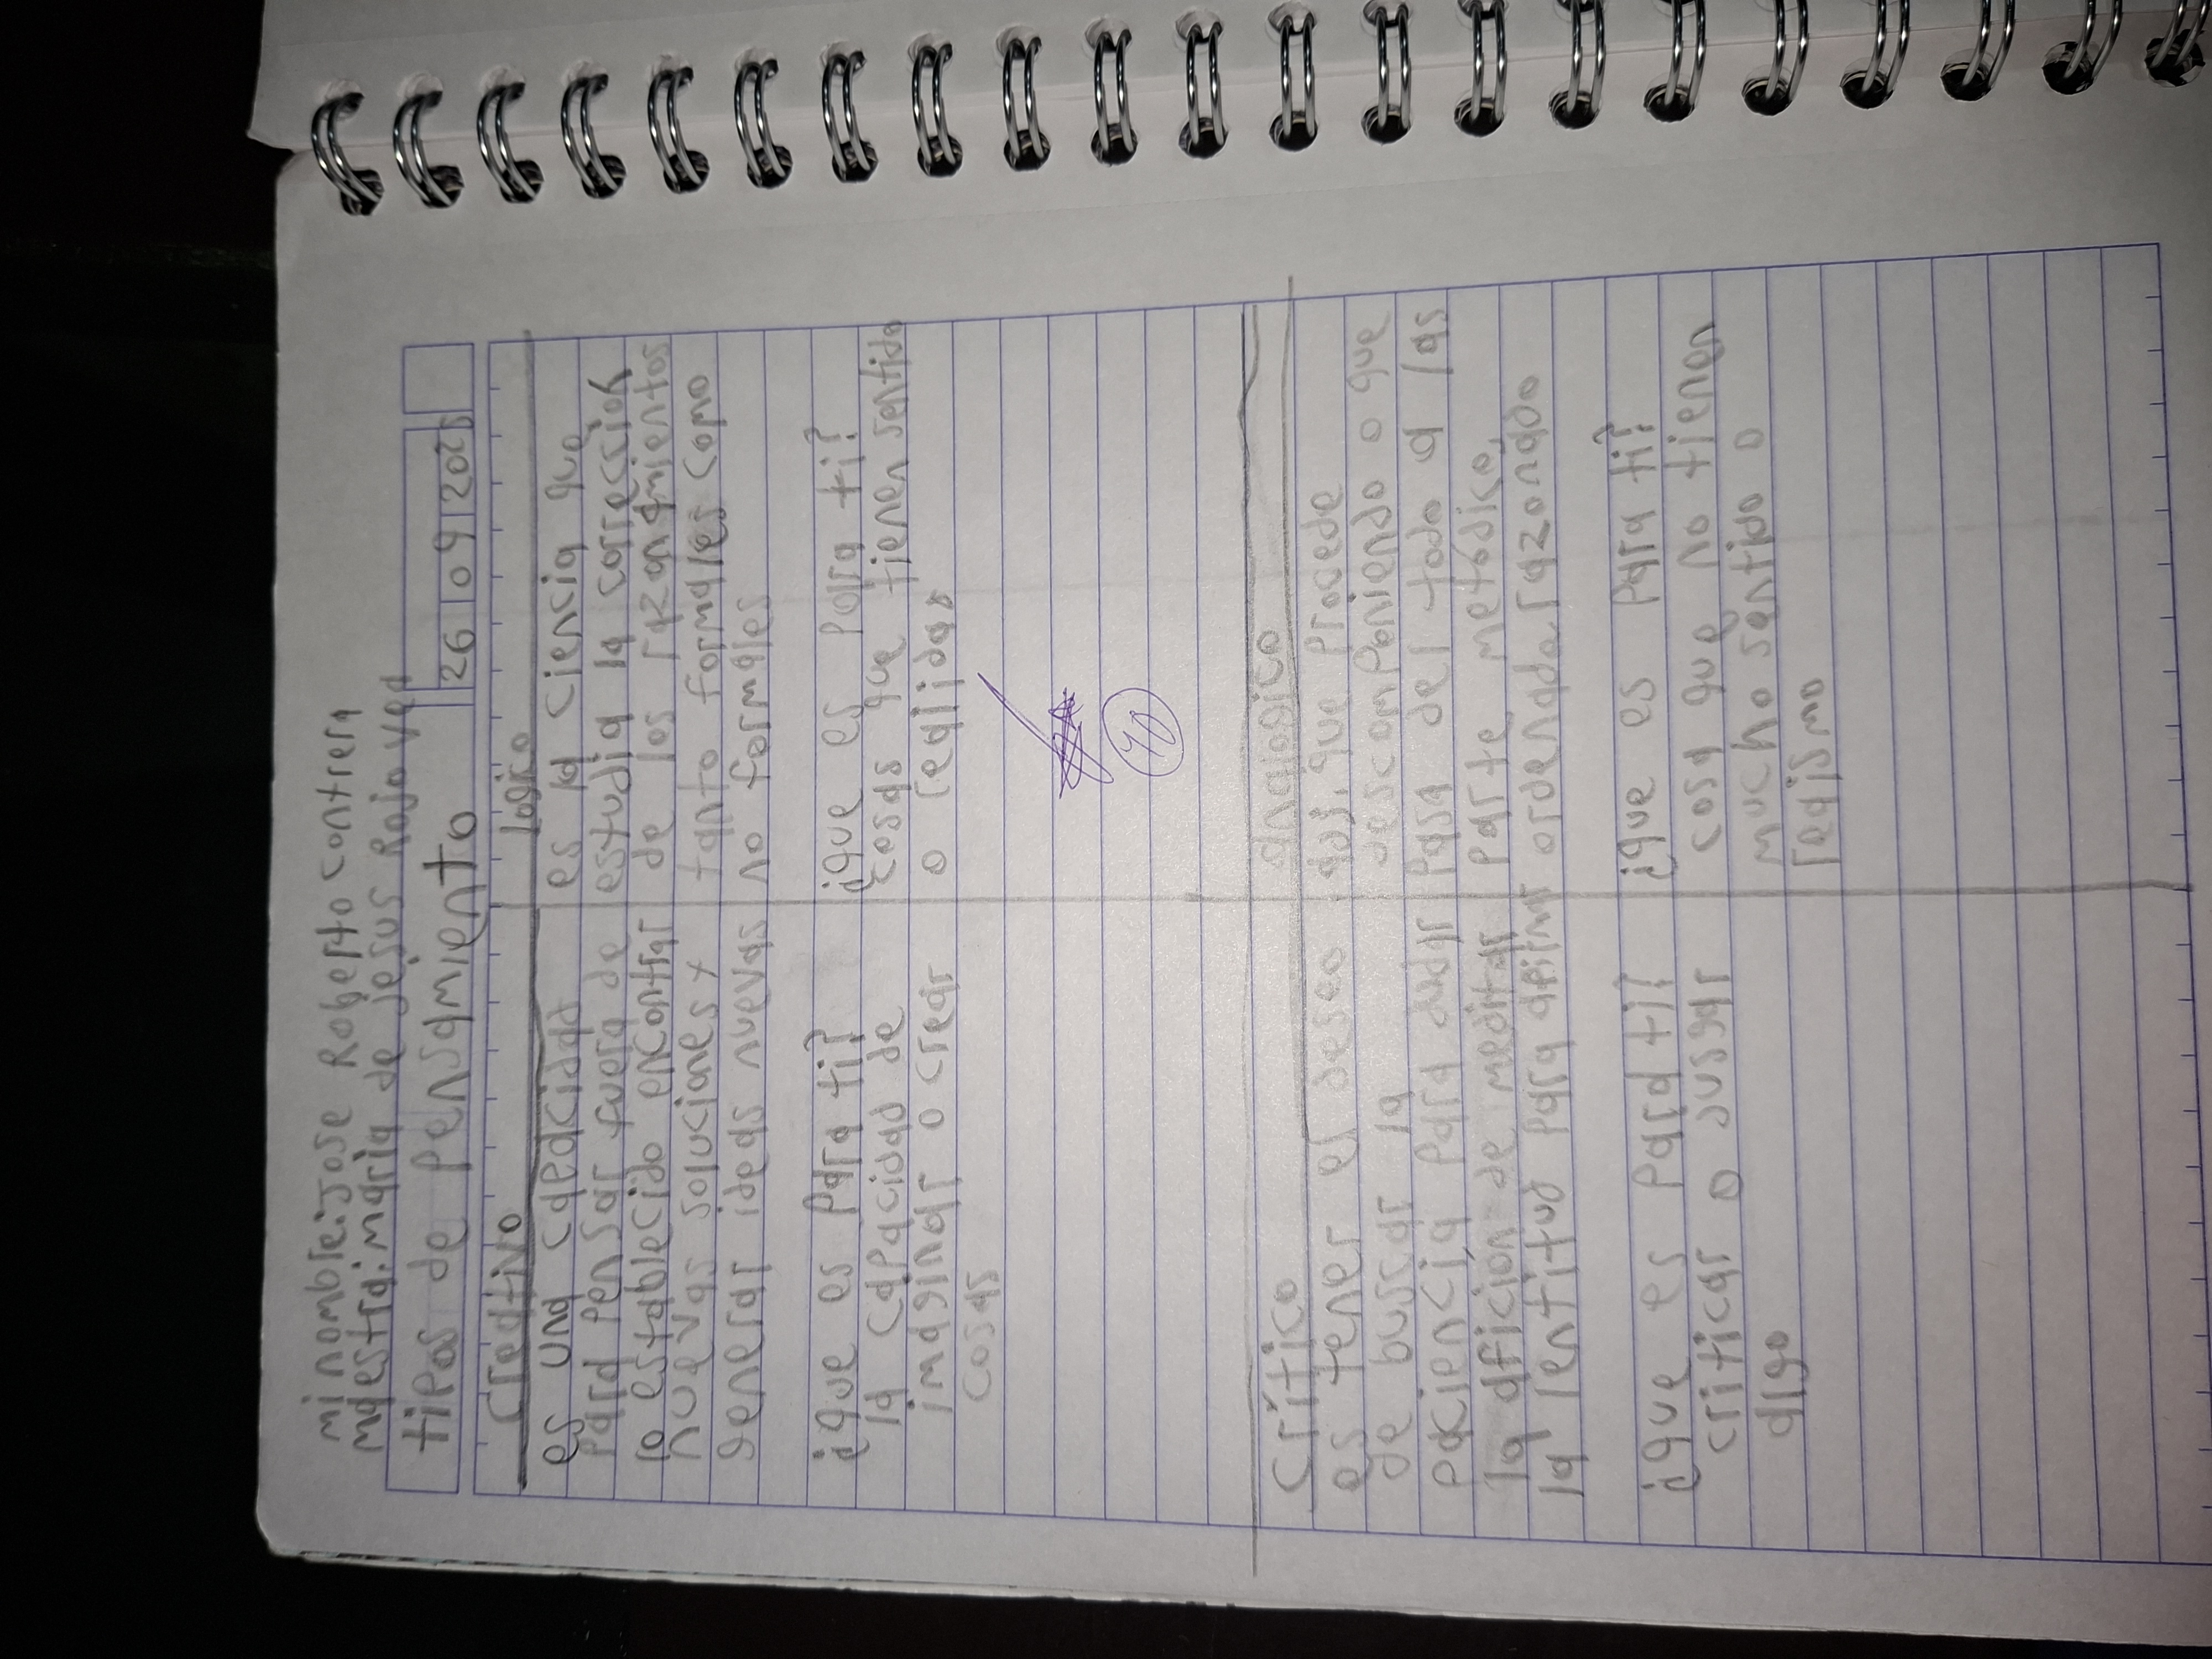 mi nombre: Jose Roberto contrera
maestra: maria de jesus Rojo ved
tipos de pensamiento
26 09 2025
Creativo
es una capacidadd
para pensar fuera de
lo establecido encontrar
nuevas soluciones y
generar ideas nuevas
¿que es para ti?
la capacidad de
imaginar o crear
cosas
logico
es la ciencia que
estudia la corrección
de los razonamientos
tanto formales como
no formales
¿que es para ti?
cosas que tienen sentido
o realidad
10
Crítico
es tener es deseo
de buscar la
paciencia para dudar
la afición de meditar
la lentitud para
analogico
adj. que procede
descomponiendo o que
pasa del todo a las
parte metódico,
ordenada razonado
¿que es para ti?
criticar o jusgar
algo
¿que es para ti?
cosa que no tienen
mucho sentido o
realismo